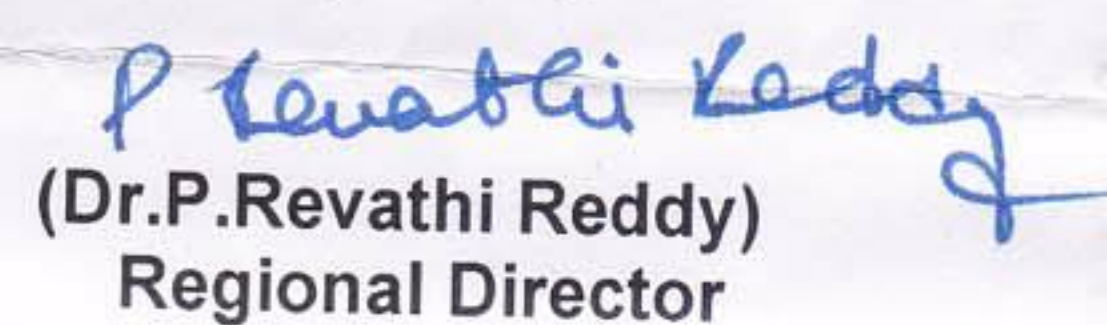 P Revathi Reddy
(Dr.P.Revathi Reddy)
Regional Director